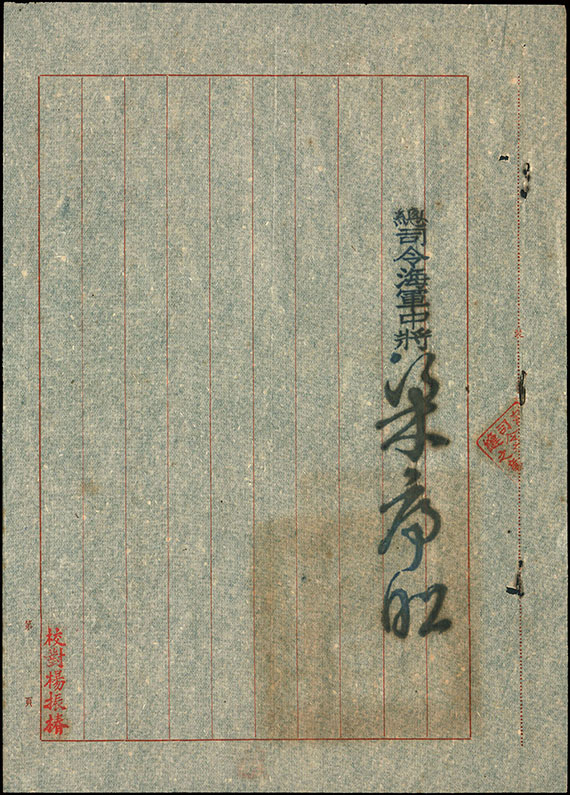 總司令海軍中將梁序昭
校對楊振椿
第 頁